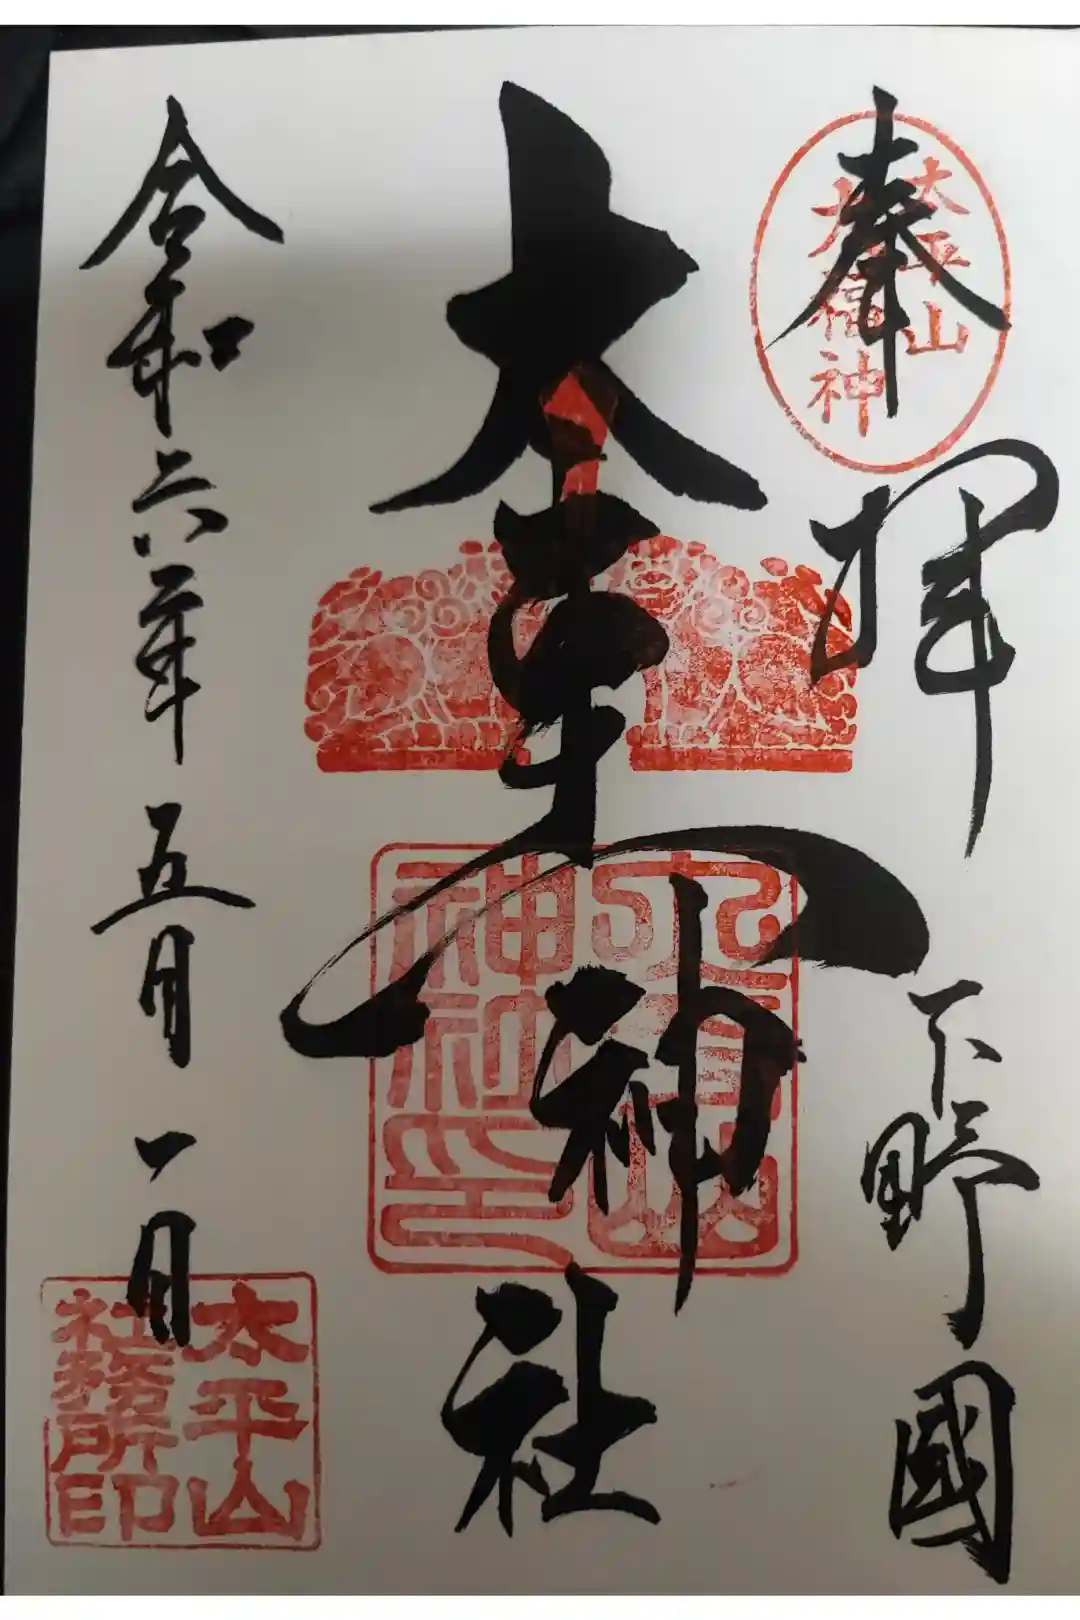 奉拝
太平山
福神
下野國
神社
太平山神社印
令和六年五月一日
太平山
社務所印